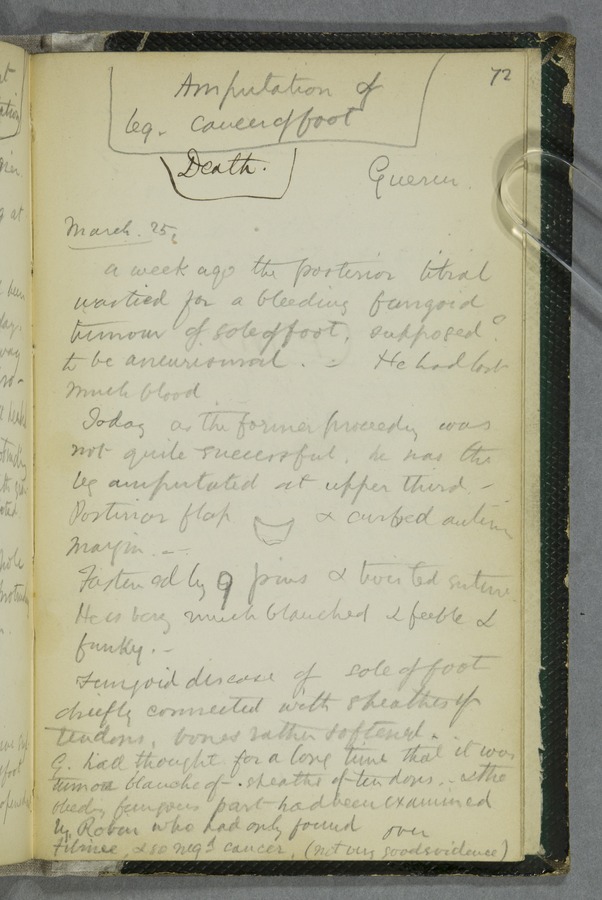 72
Amputation of
leg. cancer of foot
Death.
Guerin.
March. 25.
a week ago the posterior tibial
was tied for a bleeding fungoid
tumour of sole of foot. supposed?
to be aneurismal. - He had lost
much blood
Today as the former proceedg was
not quite successful. he has the
leg amputated at upper third -
Posterior flap & curved anterior
margin. -
Fastened by 9 pins & twisted suture.
He is very much blanched & feeble &
funky. -
Fungoid disease of sole of foot
chiefly connected with sheathes of
tendons, bones rather softened.
G. had thought for a long time that it was
tumour blanche of - sheaths of tendons. - & the
bleedg fungous part had been examined
by Robin who had only found
& so negd cancer. (not very good evidence)